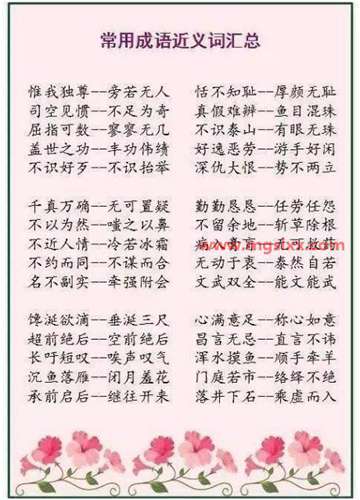 常用成语近义词汇总
惟我独尊--旁若无人 恬不知耻--厚颜无耻
司空见惯--不足为奇 真假难辨--鱼目混珠
屈指可数--寥寥无几 不识泰山--有眼无珠
盖世之功--丰功伟绩 好逸恶劳--游手好闲
不识好歹--不识抬举 深仇大恨--势不两立
千真万确--无可置疑 勤勤恳恳--任劳任怨
不以为然--嗤之以鼻 不留余地--斩草除根
不近人情--冷若冰霜
不约而同--不谋而合 无动于衷--泰然自若
名不副实--牵强附会 文武双全--能文能武
馋涎欲滴--垂涎三尺 心满意足--称心如意
超前绝后--空前绝后 昌言无忌--直言不讳
长吁短叹--唉声叹气 浑水摸鱼--顺手牵羊
沉鱼落雁--闭月羞花 门庭若市--络绎不绝
承前启后--继往开来 落井下石--乘虚而入